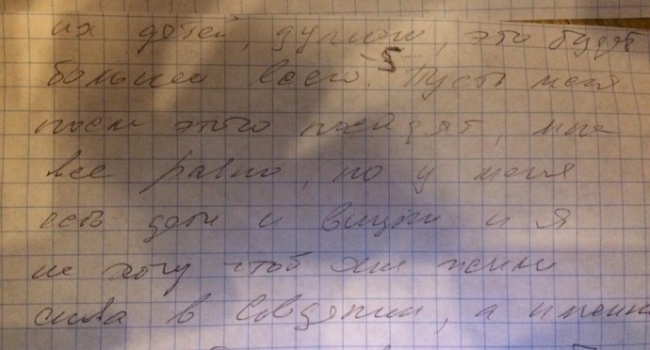 их детей, думаю, это будет
больнее всего. 5 Пусть меня
после этого посадят, мне
все равно, но у меня
есть дети и внуки и я
не хочу чтоб они жили
снова в Совдепии, а именно